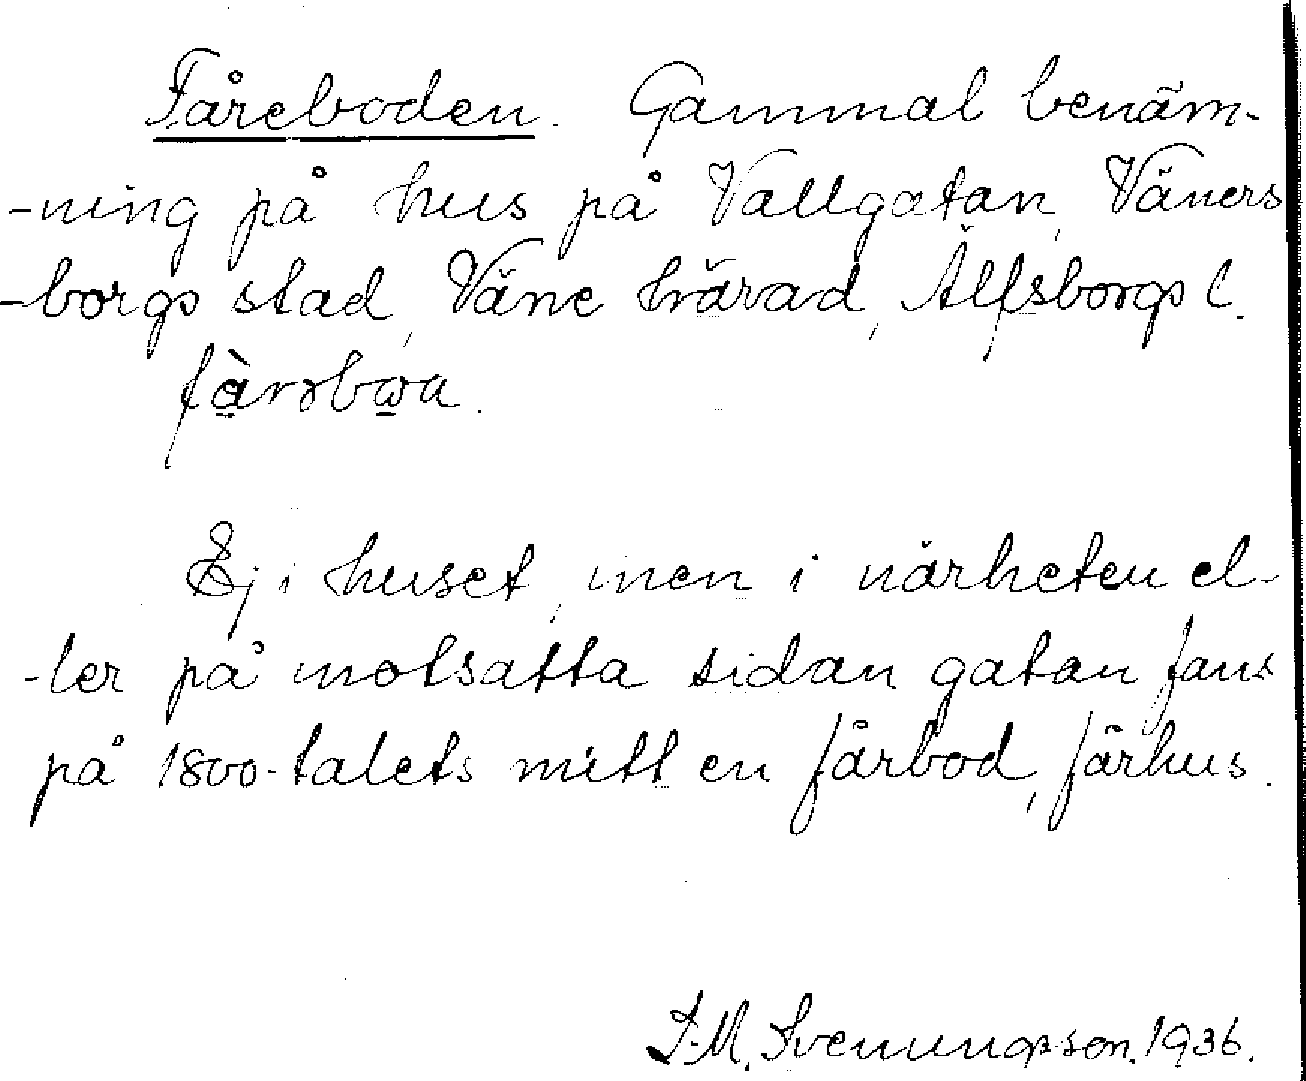 Fåreboden. Gammal benäm-
-ning på hus på Vallgatan, Väners
-borgs stad, Väne härad, Älfsborgs l.
Ej i huset, men i närheten el-
-ler på motsatta sidan gatan fans
på 1800-talets mitt en fårbod, fårhus.
J.M. Svenungsson. 1936.